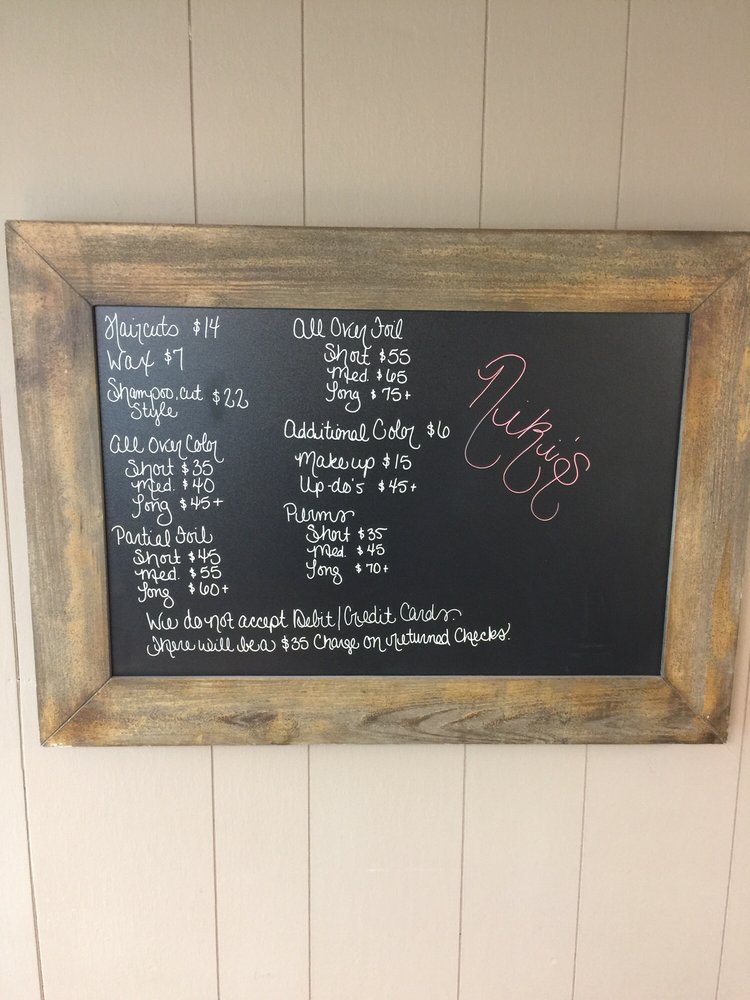 Haircuts $14
Wax $7
Shampoo, cut $22
Style
All Over Color
Short $35
Med. $40
Long $45+
Partial Foil
Short $45
Med. $55
Long $60+
All Over Foil
Short $55
Med. $65
Long $75+
Additional Color $6
Makeup $15
Up-do's $45+
Perms
Short $35
Med. $45
Long $70+
We do not accept Debit/Credit Cards.
There will be a $35 Charge on returned Checks!
Nikii's